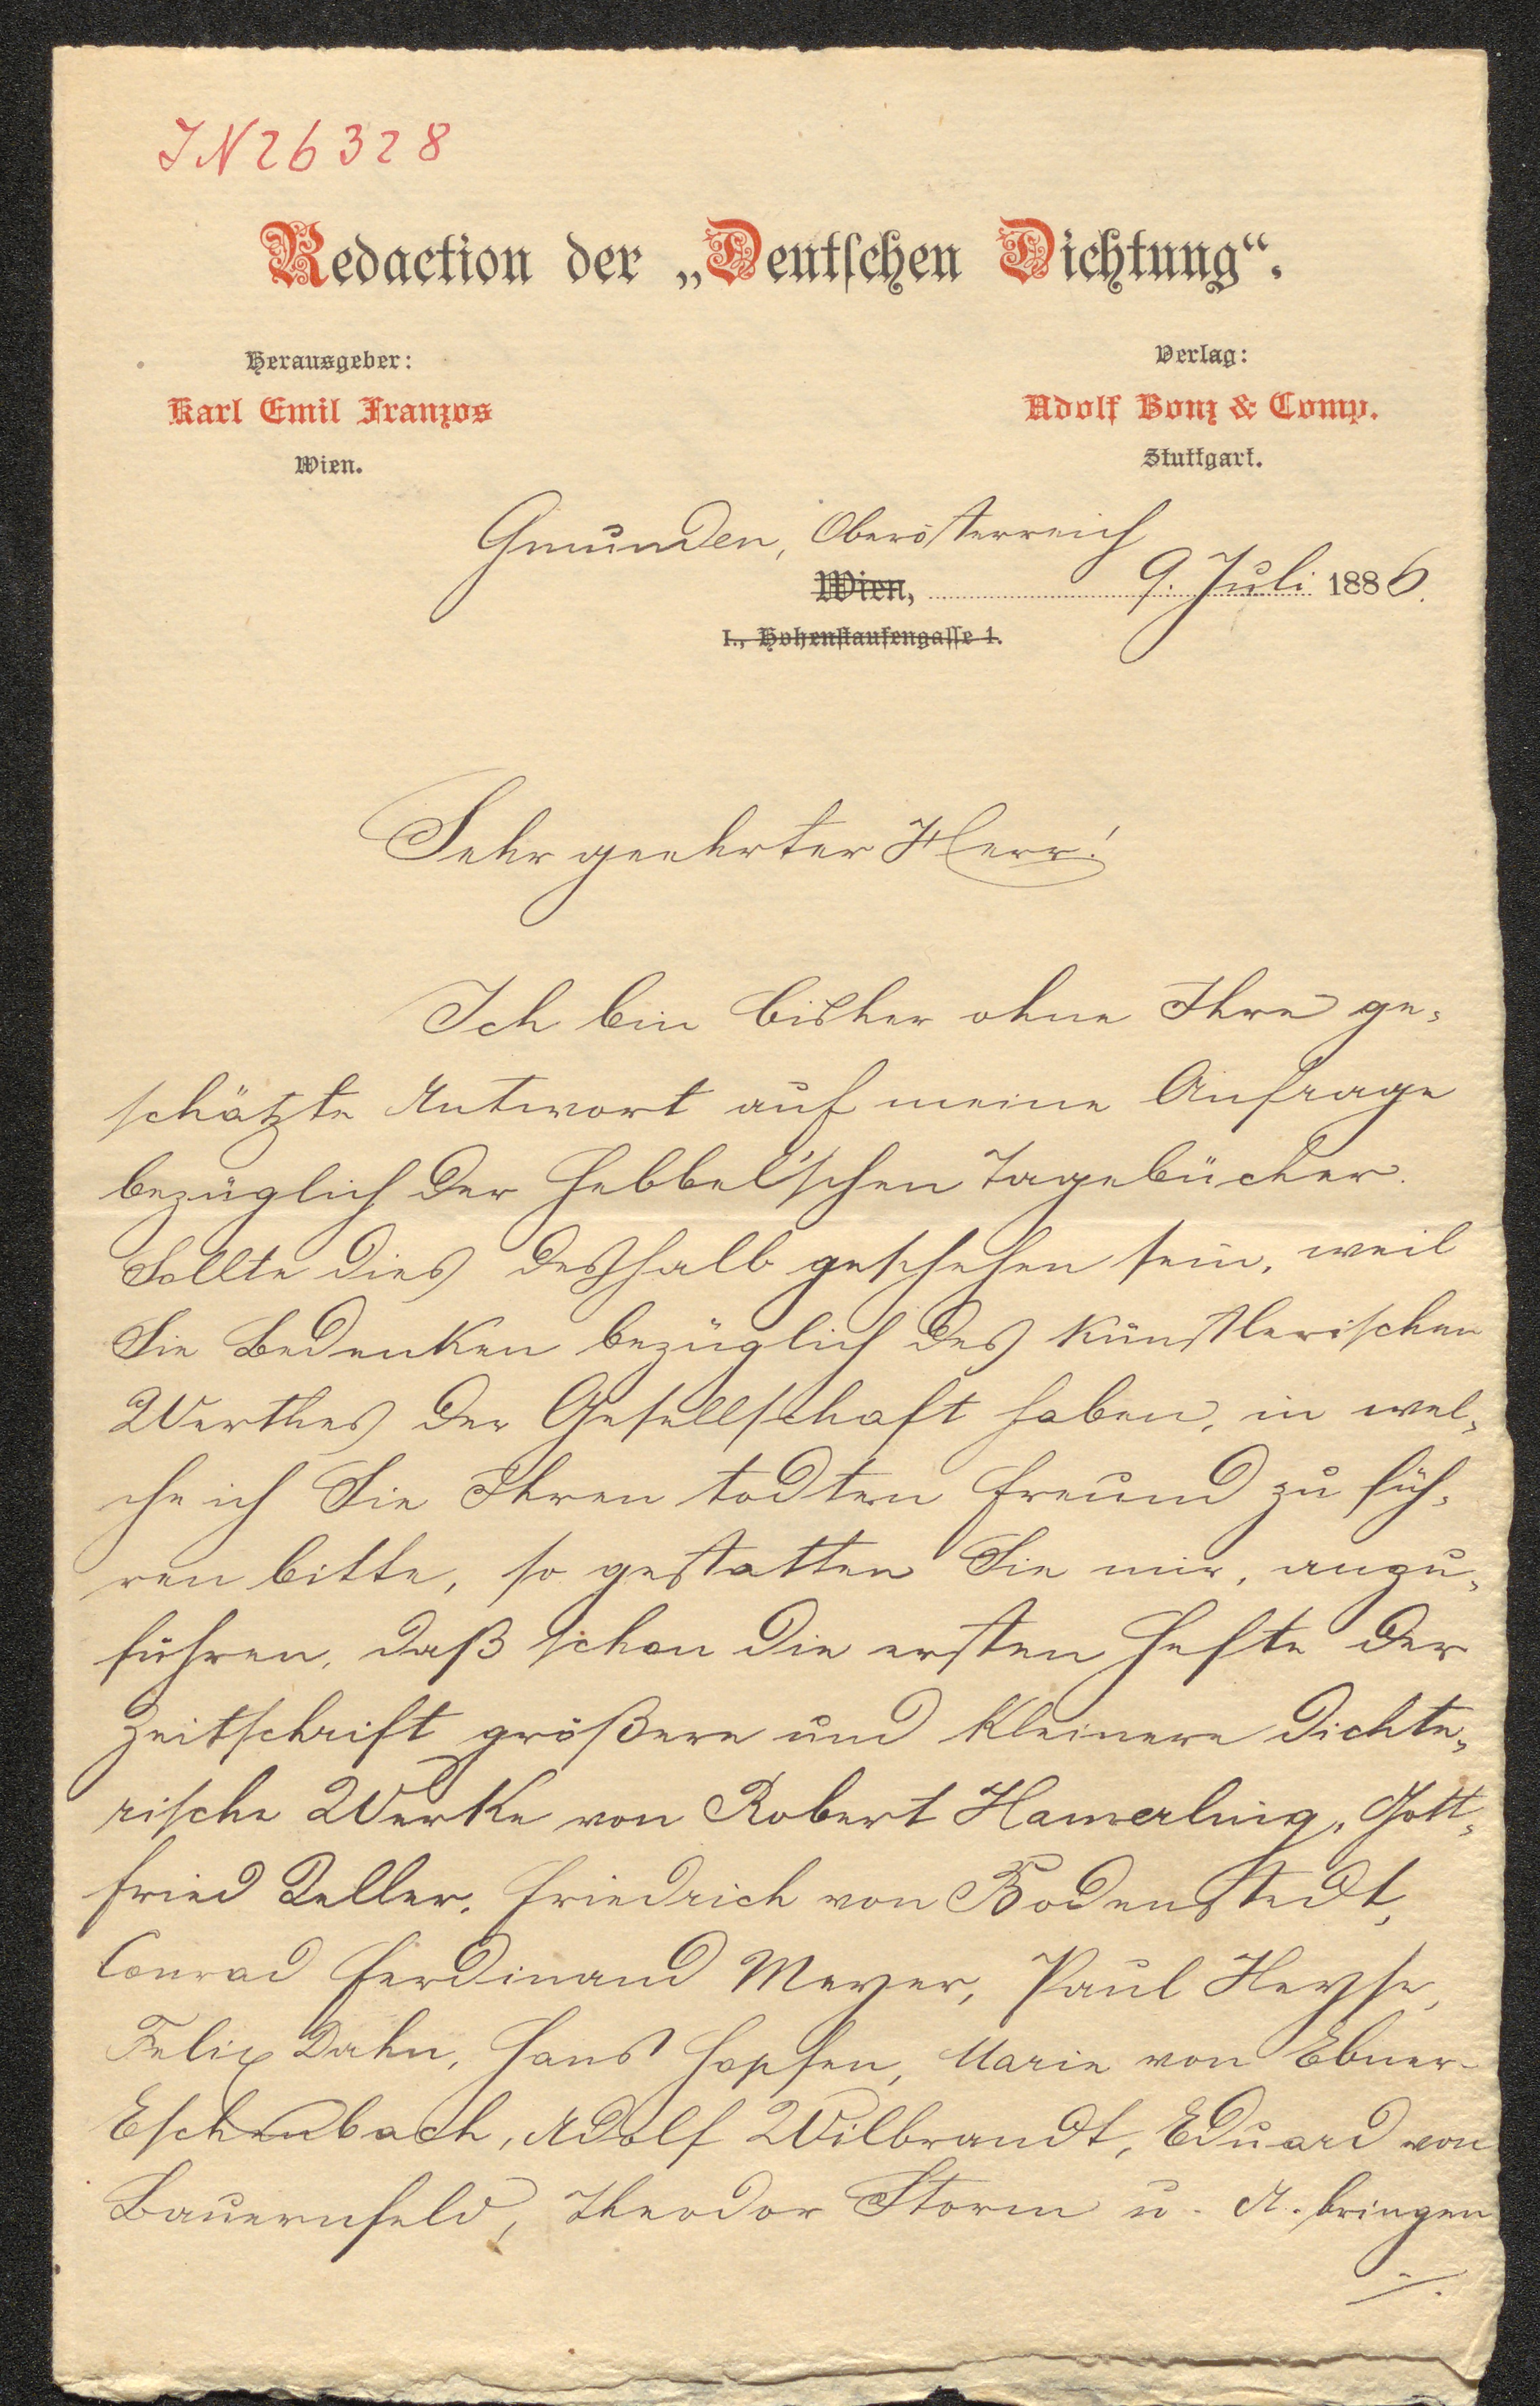 IN 26328
Redaction der „Deutschen Dichtung“.
Herausgeber:
Karl Emil Franzos
Wien.
Verlag:
Adolf Bonz & Comp.
Stuttgart.
Gmunden, Oberösterreich
Wien, 9. Juli 1886.
I., Hohenstaufengasse 1.
Sehr geehrter Herr!
Ich bin bisher ohne Ihre ge-
schätzte Antwort auf meine Anfrage
bezüglich der Hebbel'schen Tagebücher.
Sollte dies deßhalb geschehen sein, weil
Sie Bedenken bezüglich des künstlerischen
Werthes der Gesellschaft haben, in wel-
che ich Sie Ihren todten Freund zu füh-
ren bitte, so gestatten Sie mir, anzu-
führen, daß schon die ersten Hefte der
Zeitschrift größere und kleinere dichte-
rische Werke von Robert Hamerling, Gott-
fried Keller, Friedrich von Bodenstedt,
Conrad Ferdinand Meyer, Paul Heyse,
Felix Dahn, Hans Hopfen, Marie von Ebner-
Eschenbach, Adolf Wilbrandt, Eduard von
Bauernfeld, Theodor Storm u. A. bringen
./.